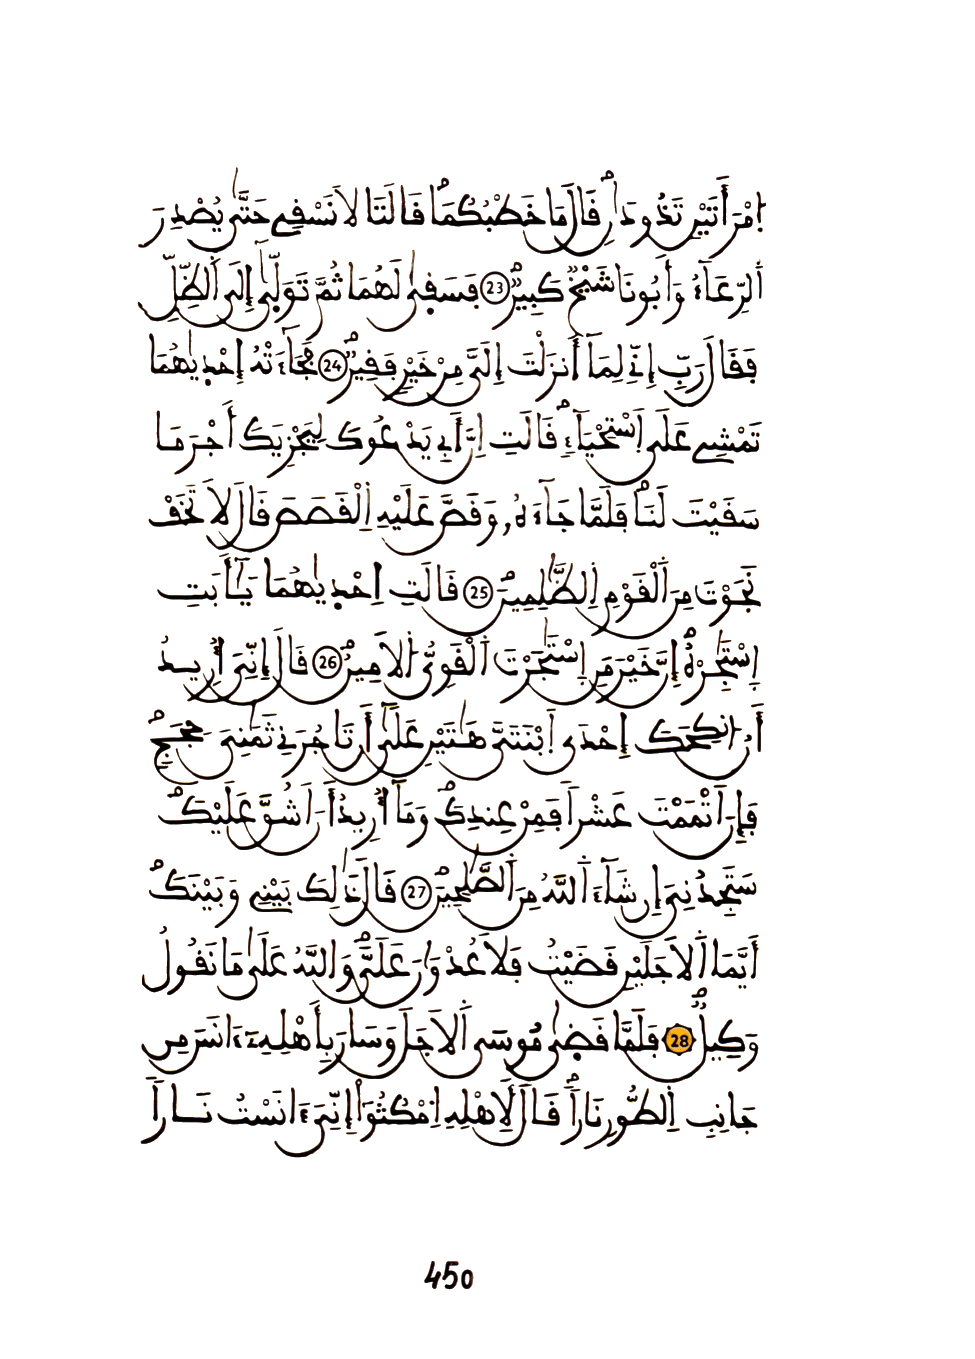 اَمْرَأَتَيْنِ تَذُودَانِ قَالَ مَا خَطْبُكُمَا قَالَتَا لَا نَسْقِے حَتَّىٰ يُصْدِرَ
اَلرِّعَآءُ وَأَبُونَا شَيْخٌ كَبِيرٌ 23 فَسَقَىٰ لَهُمَا ثُمَّ تَوَلَّىٰٓ إِلَى اَلظِّلِّ
فَقَالَ رَبِّ إِنِّے لِمَآ أَنزَلْتَ إِلَىَّ مِنْ خَيْرٍ فَقِيرٌ 24 فَجَآءَتْهُ إِحْدٜيٰهُمَا
تَمْشِے عَلَى اَسْتِحْيَآءٍ قَالَتِ إِنَّ أَبِے يَدْعُوكَ لِيَجْزِيَكَ أَجْرَ مَا
سَقَيْتَ لَنَا فَلَمَّا جَآءَهُۥ وَقَصَّ عَلَيْهِ اِلْقَصَصَ قَالَ لَا تَخَفْ
نَجَوْتَ مِنَ اَلْقَوْمِ اِلظَّٰلِمِينَ 25 قَالَتِ اِحْدٜيٰهُمَا يَٰٓأَبَتِ
اِسْتَٰٔجِرْهُ إِنَّ خَيْرَ مَنِ اِسْتَٰٔجَرْتَ اَلْقَوِىُّ اُلَامِينُ 26 قَالَ إِنِّىَ أُرِيدُ
أَنُ انكِحَكَ إِحْدَى اَبْنَتَىَّ هَٰتَيْنِ عَلَىٰٓ أَن تَاجُرَنِے ثَمَٰنِىَ حِجَجٍ
فَإِنَ اَتْمَمْتَ عَشْراً فَمِنْ عِندِكَ وَمَآ أُرِيدُ أَنَ اَشُقَّ عَلَيْكَ
سَتَجِدُنِىَ إِن شَآءَ اَللَّهُ مِنَ اَلصَّٰلِحِينَ 27 قَالَ ذَٰلِكَ بَيْنِے وَبَيْنَكَ
أَيَّمَا اَلَاجَلَيْنِ قَضَيْتُ فَلَا عُدْوَٰنَ عَلَىَّ وَاللَّهُ عَلَىٰ مَا نَقُولُ
وَكِيلٌ 28 فَلَمَّا قَضَىٰ مُوسَى اَلَاجَلَ وَسَارَ بِأَهْلِهِۦٓ ءَانَسَ مِن
جَانِبِ اِلطُّورِ نَاراً قَالَ لِأَهْلِهِ اِمْكُثُوٓاْ إِنِّىَ ءَانَسْتُ نَاراً
450